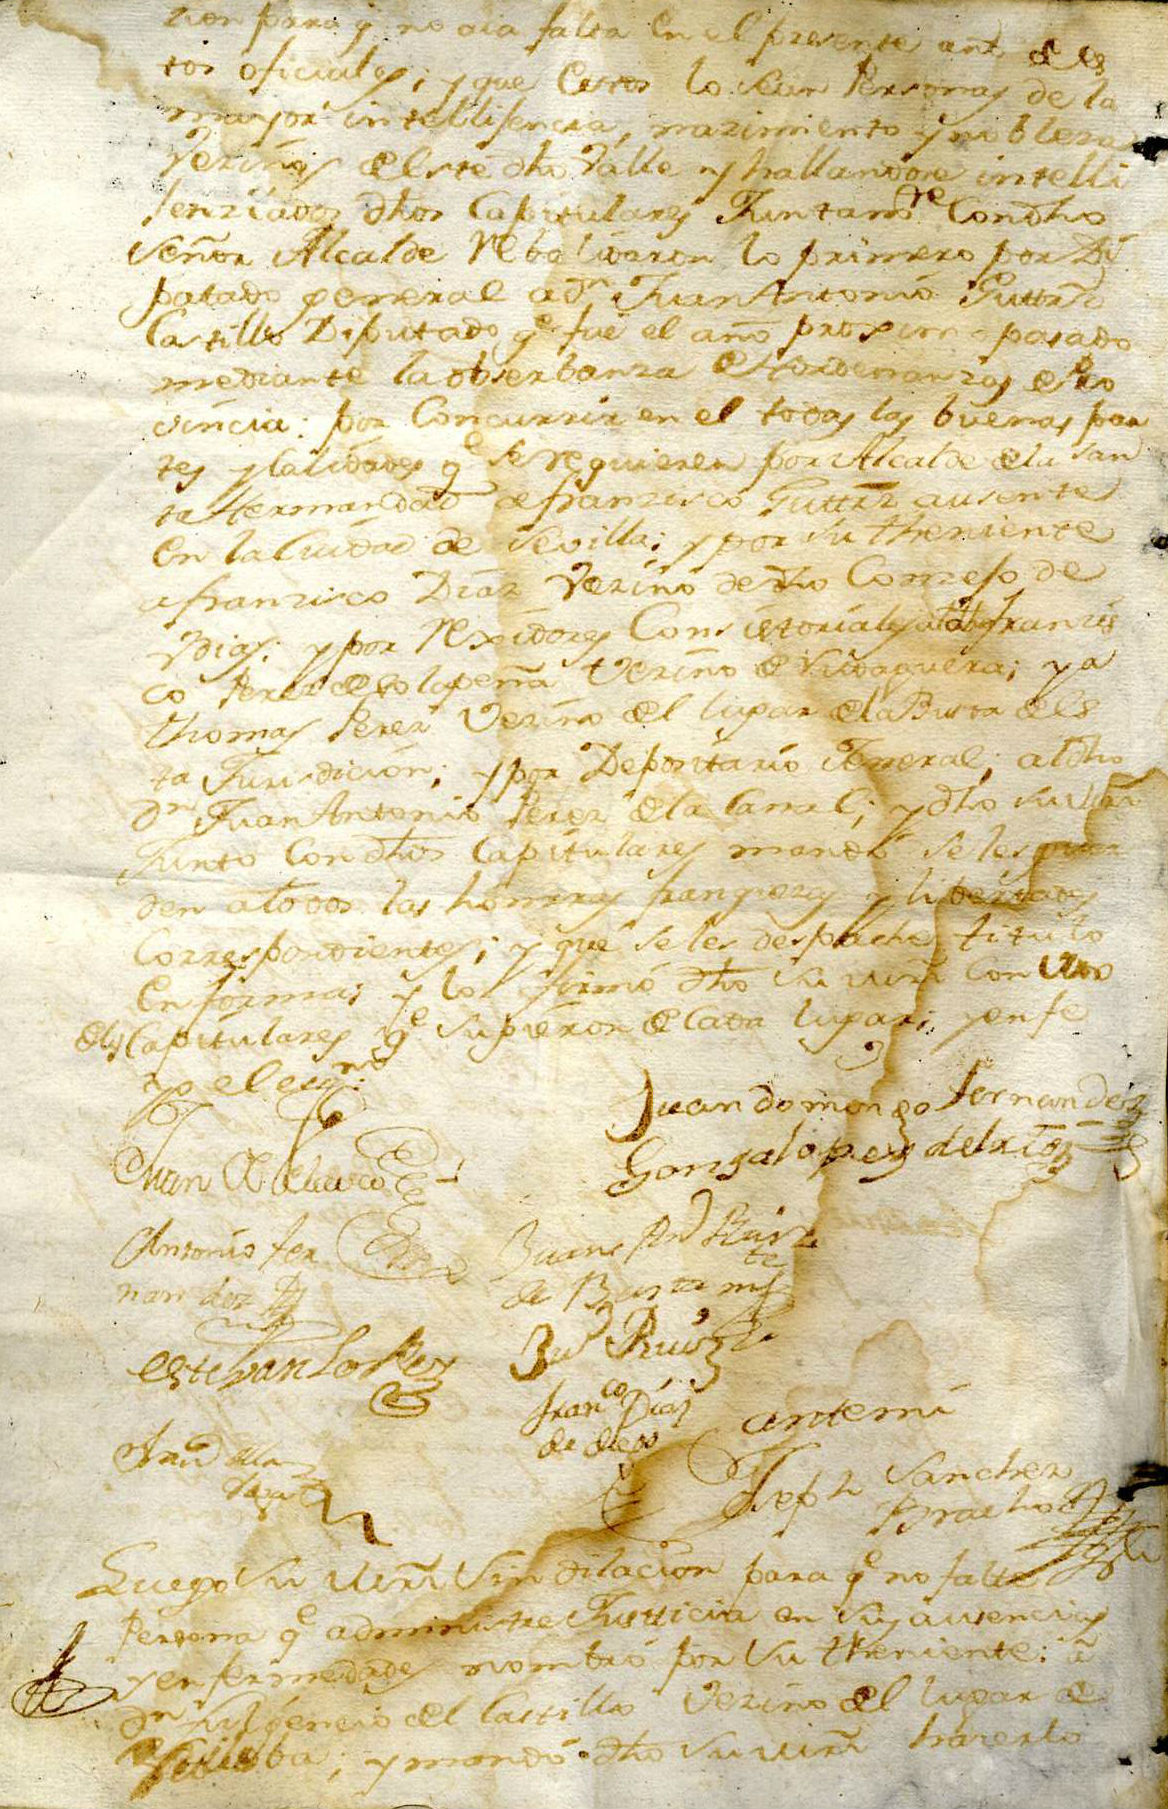 zion para q no aia falta en el presente año de es
tos oficiales; y que estos lo sean Personas de la
mayor intellisencia, nazimiento y nobleza
Vezinos de este dho Valle y hallandose intelli
senziados dhos Capitulares Juntamte Con dho
Señor Alcalde Rebalidaron lo primero por Di
patado general a dn Juan Antonio Guttrz
Castillo Diputado qe fue el año proximo pasado
mediante la obserbanza de Hordenanzas de Pro
vincia: por Concurrir en el todas las buenas par
tes y Calidades qe se requieren por Alcalde de la san
ta Hermandad a franzisco Guttrz ausente
en la Ciudad de Sevilla; y por su theniente
a franzisco Diaz Vezino de dho Conzejo de
Vdias; y por Rexidores Consistoriales a franzis
co Perez de la peña Vezino de Virdaguera; y a
thomas Perez Vezino del lugar de la Busta de es
ta Jurisdicion; y por Depositario General; al dho
dn Juan Antonio Perez de la Canal; y dho su mrd
Junto Con dhos Capitulares mando se les guar
den a todos las honrras franquezas y libertades
Correspondientes; y que se les despache titulo
en forma; y lo firmó dho su mrd con uno
de los Capitulares qe supieron de Cada lugar; y en fe
yo el essno
Juan domingo fernandez
Gonzalo perez del rio
Juan
Antonio fer
nandez
Juan Anto Ruiz
de Bustamte
estevan Lopez
Ruiz
franco Diaz
de diego
ante mi
Joseph Sanchez
Bracho
Luego su mrd sin dilacion para qe no falte
Persona qe administre Justticia en sus ausencias
y enfermedades nombró por su theniente: a
dn fulgencio del Castillo Vezino del lugar de
; y mandó dho su mrd hazerlo